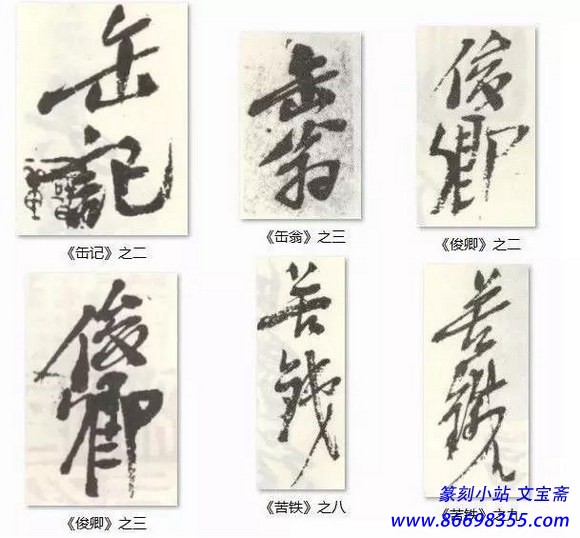 缶記
缶翁
俊卿
《缶记》之二
《缶翁》之三
《俊卿》之二
俊卿
苦鉄
苦鐵人
《俊卿》之三
《苦铁》之八
《苦铁》之九
篆刻小站 文宝斋
www.86698355.com